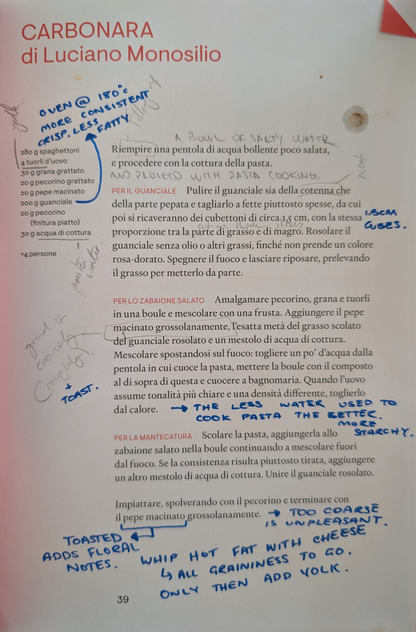 CARBONARA
di Luciano Monosilio
OVEN @ 180°C
MORE CONSISTENT
CRISP. LESS FATTY
280 g spaghettoni
4 tuorli d'uovo
30 g grana grattato
20 g pecorino grattato
20 g pepe macinato
200 g guanciale
20 g pecorino
(finitura piatto)
30 g acqua di cottura
*4 persone
pasta water
grind it
coarsely
+
TOAST.
A BOWL OF SALTY WATER
Riempire una pentola di acqua bollente poco salata,
e procedere con la cottura della pasta.
AND PROCEED WITH PASTA COOKING
PER IL GUANCIALE Pulire il guanciale sia della cotenna che
della parte pepata e tagliarlo a fette piuttosto spesse, da cui
poi si ricaveranno dei cubettoni di circa 1,5 cm, con la stessa
1.5CM
CUBES.
proporzione tra la parte di grasso e di magro. Rosolare il
guanciale senza olio o altri grassi, finché non prende un colore
rosa-dorato. Spegnere il fuoco e lasciare riposare, prelevando
il grasso per metterlo da parte.
PER LO ZABAIONE SALATO Amalgamare pecorino, grana e tuorli
in una boule e mescolare con una frusta. Aggiungere il pepe
macinato grossolanamente, l'esatta metà del grasso scolato
del guanciale rosolato e un mestolo di acqua di cottura.
Mescolare spostandosi sul fuoco: togliere un po' d'acqua dalla
pentola in cui cuoce la pasta, mettere la boule con il composto
al di sopra di questa e cuocere a bagnomaria. Quando l'uovo
assume tonalità più chiare e una densità differente, toglierlo
dal calore.
→ THE LESS WATER USED TO
COOK PASTA THE BETTER.
MORE
STARCHY.
PER LA MANTECATURA Scolare la pasta, aggiungerla allo
zabaione salato nella boule continuando a mescolare fuori
dal fuoco. Se la consistenza risulta piuttosto tirata, aggiungere
un altro mestolo di acqua di cottura. Unire il guanciale rosolato.
Impiattare, spolverando con il pecorino e terminare con
il pepe macinato grossolanamente.
→ TOO COARSE
IS UNPLEASANT.
TOASTED
ADDS FLORAL
NOTES.
WHIP HOT FAT WITH CHEESE
↳ ALL GRAININESS TO GO.
ONLY THEN ADD YOLK.
39